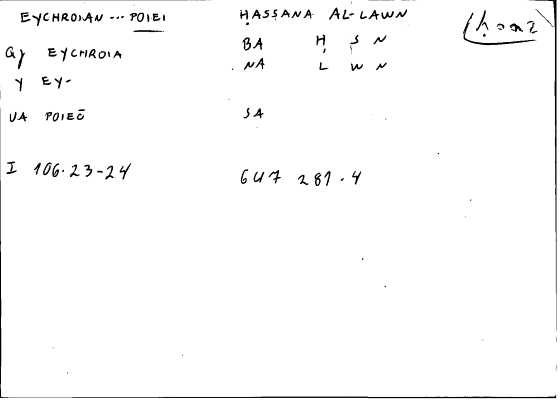 EYCHROIAN ... POIEI ḤASSANA AL-LAWN
Gy EYCHROIA BA Ḥ S N
Y EY- NA L W N
VA POIEŌ SA
I 106.23-24 GU7 281.4